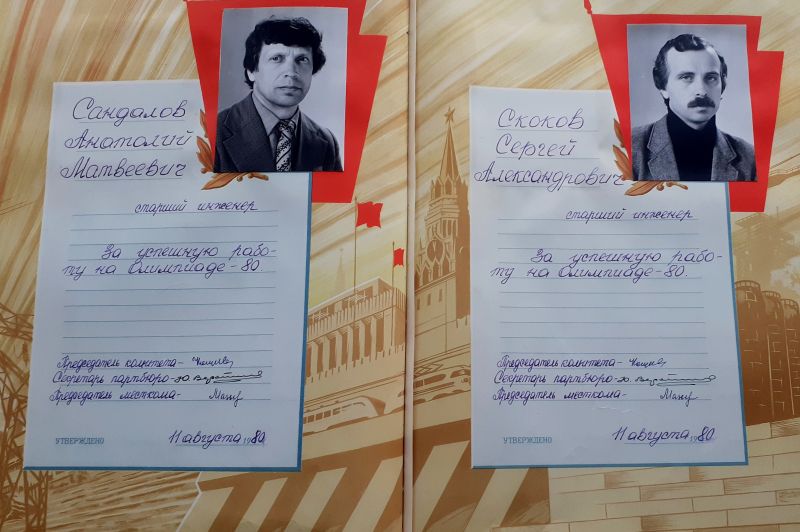 Сандалов
Анатолий
Матвеевич
старший инженер
За успешную рабо-
ту на Олимпиаде-80.
Председатель комитета-
Секретарь партбюро-
Председатель месткома-
УТВЕРЖДЕНО 11 августа 1980
Скоков
Сергей
Александрович
старший инженер
За успешную рабо-
ту на Олимпиаде-80.
Председатель комитета-
Секретарь партбюро-
Председатель месткома-
УТВЕРЖДЕНО 11 августа 1980